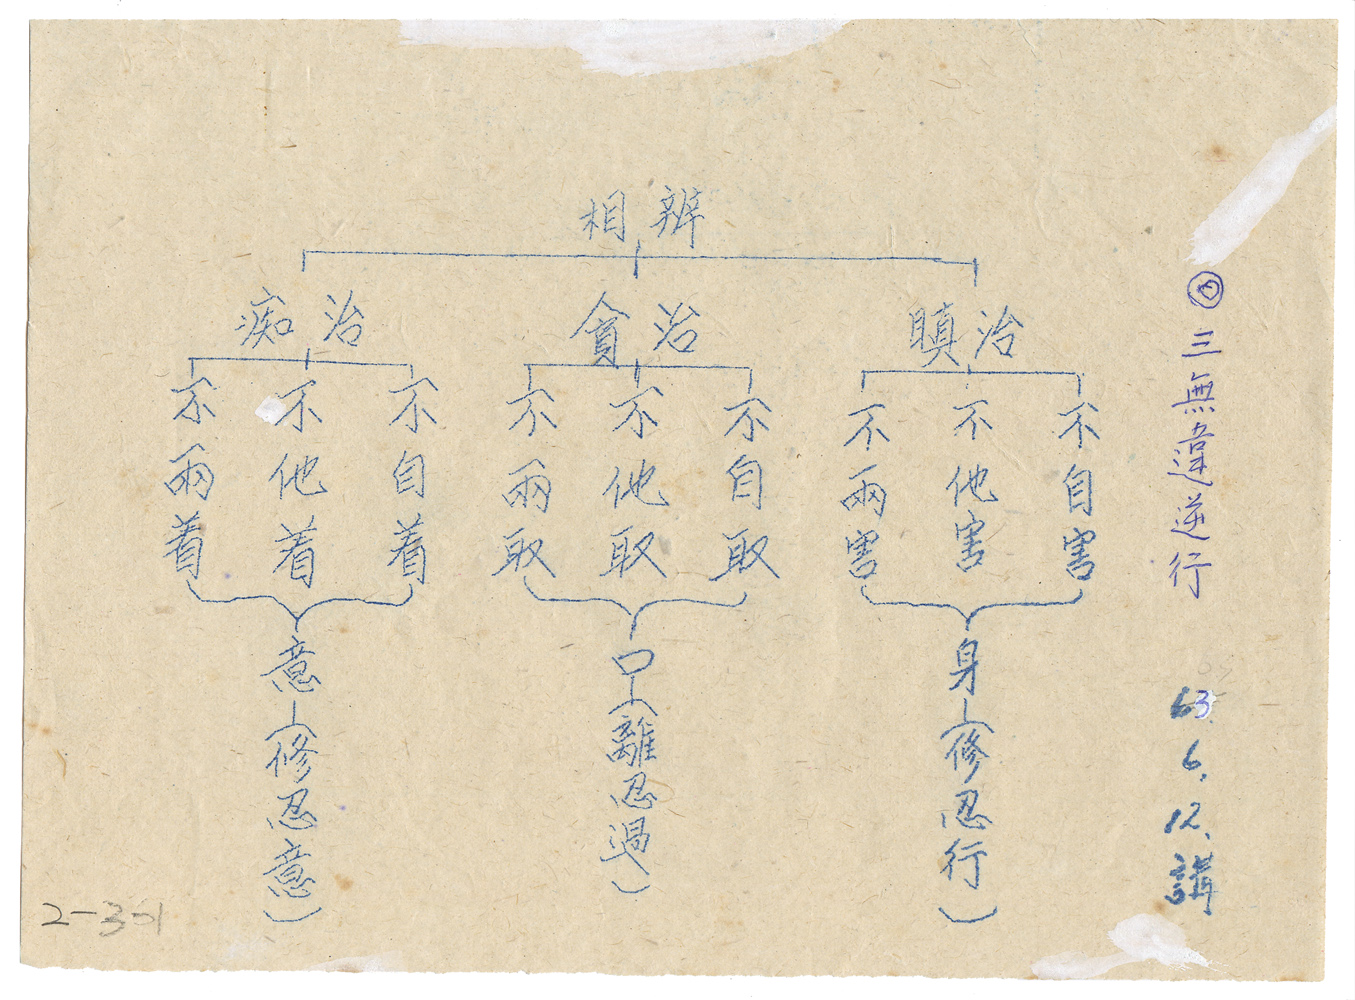 三無違逆行
63.6.12.講
辨相
治瞋
不自害
不他害
不兩害
身（修忍行）
治貪
不自取
不他取
不兩取
口（離忍過）
治痴
不自着
不他着
不兩着
意（修忍意）
2-3-1